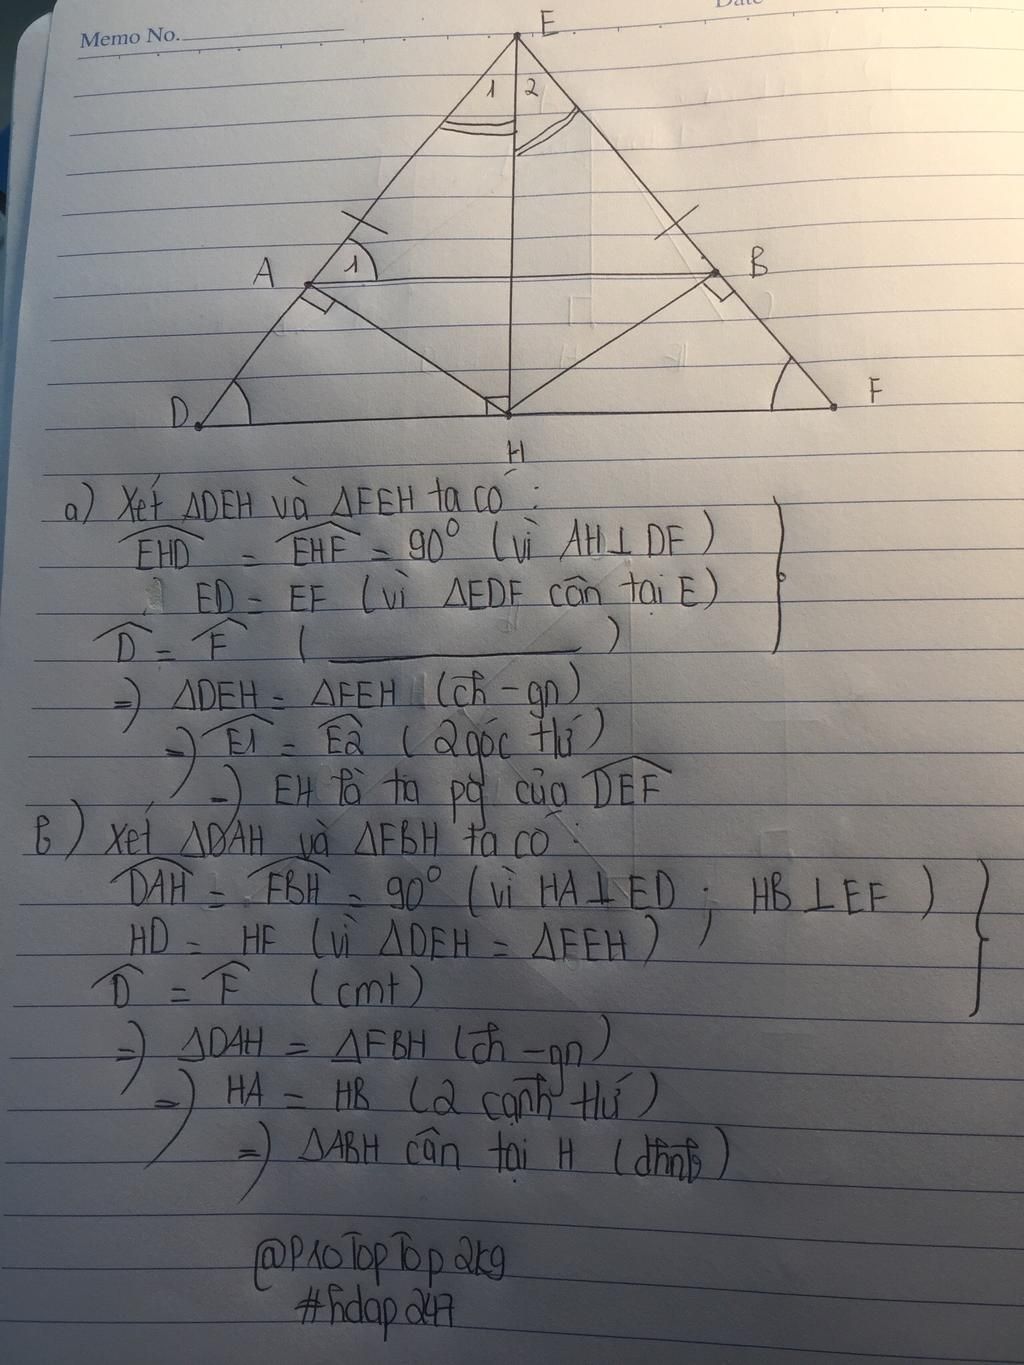 Date
Memo No.
E
1 2
A 1 B
D F
H
a) Xét ΔDEH và ΔFEH ta có :
EHD = EHF = 90° (vì AH ⊥ DF)
ED = EF (vì ΔEDF cân tại E)
D = F ( ______ )
=) ΔDEH = ΔFEH (ch - gn)
=) E1 = E2 (2 góc tứ)
=) EH là ta pg của DEF
b) Xét ΔDAH và ΔFBH ta có :
DAH = FBH = 90° (vì HA ⊥ ED ; HB ⊥ EF)
HD = HF (vì ΔDEH = ΔFEH)
D = F (cmt)
=) ΔDAH = ΔFBH (ch - gn)
=) HA = HB (2 cạnh tứ)
=) ΔABH cân tại H (đhnb)
@P10TopTop2k9
#hdap247